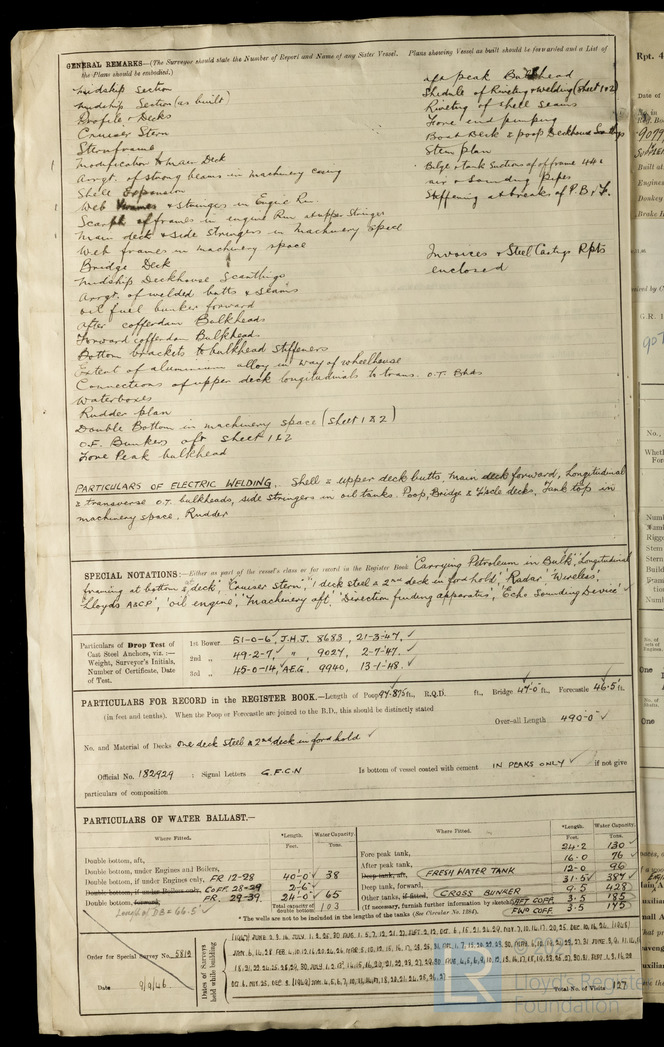 GENERAL REMARKS—(The Surveyor should state the Number of Report and Name of any Sister Vessel. Plans showing Vessel as built should be forwarded and a List of
the Plans should be embodied.)
Midship Section
Midship Section (as built)
Profile & Decks
Cruiser Stern
Sternframe
Modification to Main Deck
Arrgt. of strong beams in machinery casing
Shell Expansion
Web Frames & Stringers in Engine Rm.
Scarph of frames in engine Rm at upper Stringer
Main deck & side stringers in Machinery space
Web frames in machinery space
Bridge Deck
Midship Deckhouse Scantlings
Arrgt. of welded butts & seams
Oil fuel bunker forward
After cofferdam Bulkheads
Forward cofferdam Bulkheads
Bottom brackets to bulkhead stiffeners
Extent of aluminium alloy in way of wheelhouse
Connections of upper deck longitudinals to trans. O.T. Bhds
Waterboxes
Rudder plan
Double Bottom in machinery space (sheet 1 & 2)
O.F. Bunkers aft sheet 1 & 2
Fore Peak bulkhead
Aft peak Bulkhead
Shedule of Riveting & welding (sheet 1 & 2)
Riveting of shell seams
Fore end pumping
Boat Deck & poop Deckhouse Scantlings
Stem plan
Bilge & tank Suctions aft of frame 44
air & Sounding pipes
Stiffening at break of P. B. & F.
Invoices & Steel Castings Rpts
enclosed
PARTICULARS OF ELECTRIC WELDING. Shell & upper deck butts, main deck forward, Longitudinal
& transverse O.T. bulkheads, side stringers in oil tanks. Poop, Bridge & F'cle decks, Tank top in
machinery space, Rudder
SPECIAL NOTATIONS:—Either as part of the vessel's class or for record in the Register Book 'Carrying Petroleum in Bulk', 'Longitudinal
framing at bottom & at deck', 'Cruiser stern', '1 deck steel & 2nd deck in ford hold', 'Radar', 'Wireless',
'Lloyds A&CP', 'oil engine', 'Machinery aft', 'Direction finding apparatus', 'Echo Sounding Device'
Particulars of Drop Test of
Cast Steel Anchors, viz.:—
Weight, Surveyor's Initials,
Number of Certificate, Date
of Test.
1st Bower 51-0-6, J.H.J. 8683, 21-3-47.
2nd „ 49-2-7, „ 9027, 2-7-47.
3rd „ 45-0-14, A.E.G. 9940, 13-1-48.
PARTICULARS FOR RECORD in the REGISTER BOOK.—Length of Poop 97.875 ft., R.Q.D. ft., Bridge 47.0 ft., Forecastle 46.5 ft.
(in feet and tenths). When the Poop or Forecastle are joined to the B.D., this should be distinctly stated
Over-all Length 490.0
No. and Material of Decks One deck steel & 2nd deck in ford hold
Official No. 182929 : Signal Letters G.F.C.N Is bottom of vessel coated with cement IN PEAKS ONLY if not give
particulars of composition
PARTICULARS OF WATER BALLAST.—
Where Fitted. *Length. Water Capacity.
Feet. Tons.
Double bottom, aft,
Double bottom, under Engines and Boilers,
Double bottom, if under Engines only, FR 12-28 40-0 38
Double bottom, if under Boilers only, COFF. 28-29 2-6
Double bottom, forward, FR. 29-39 24-0 65
Total capacity of double bottom 103
Length of DB = 66.5
Where Fitted. *Length. Water Capacity.
Feet. Tons.
Fore peak tank, 24.2 130
After peak tank, 16.0 76
Deep tank, aft, FRESH WATER TANK 12.0 96
Deep tank, forward, 31.5 387
Other tanks, if fitted, CROSS BUNKER 9.5 428
(If necessary, furnish further information by sketch) AFT COFF. 3.5 183
FWD COFF. 3.5 145
* The wells are not to be included in the lengths of the tanks (See Circular No. 1284).
Order for Special Survey No. 5812
Date 9/9/46
Dates of Surveys
held while building
Total No. of Visits 127
Lloyd's Register
Foundation
Rpt. 4
Date of
Built at
Engines
Donkey
G.R. 1
No.,
One
One